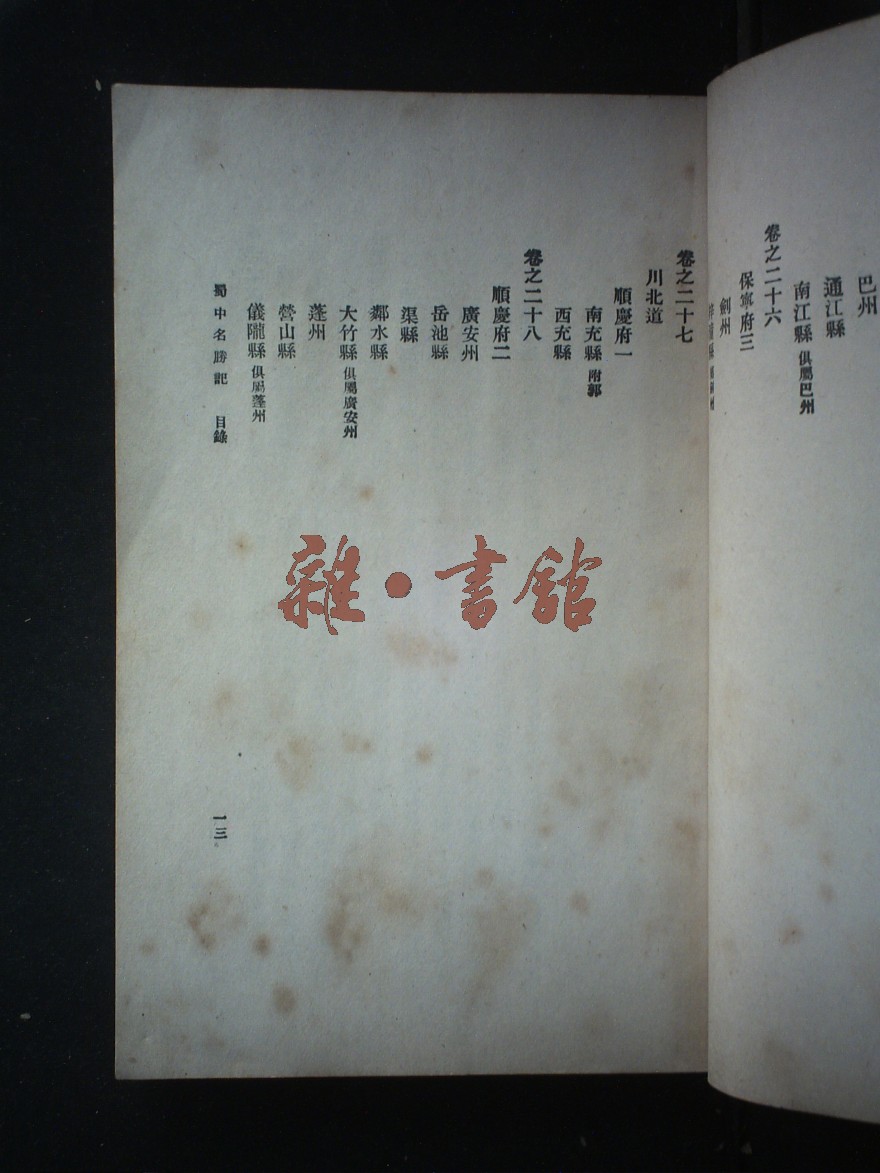 巴州
通江縣
南江縣 俱屬巴州
卷之二十六
保寧府三
劍州
卷之二十七
川北道
順慶府一
南充縣 附郭
西充縣
卷之二十八
順慶府二
廣安州
岳池縣
渠縣
鄰水縣
大竹縣 俱屬廣安州
蓬州
營山縣
儀隴縣 俱屬蓬州
蜀中名勝記 目錄
一三
雜·書館